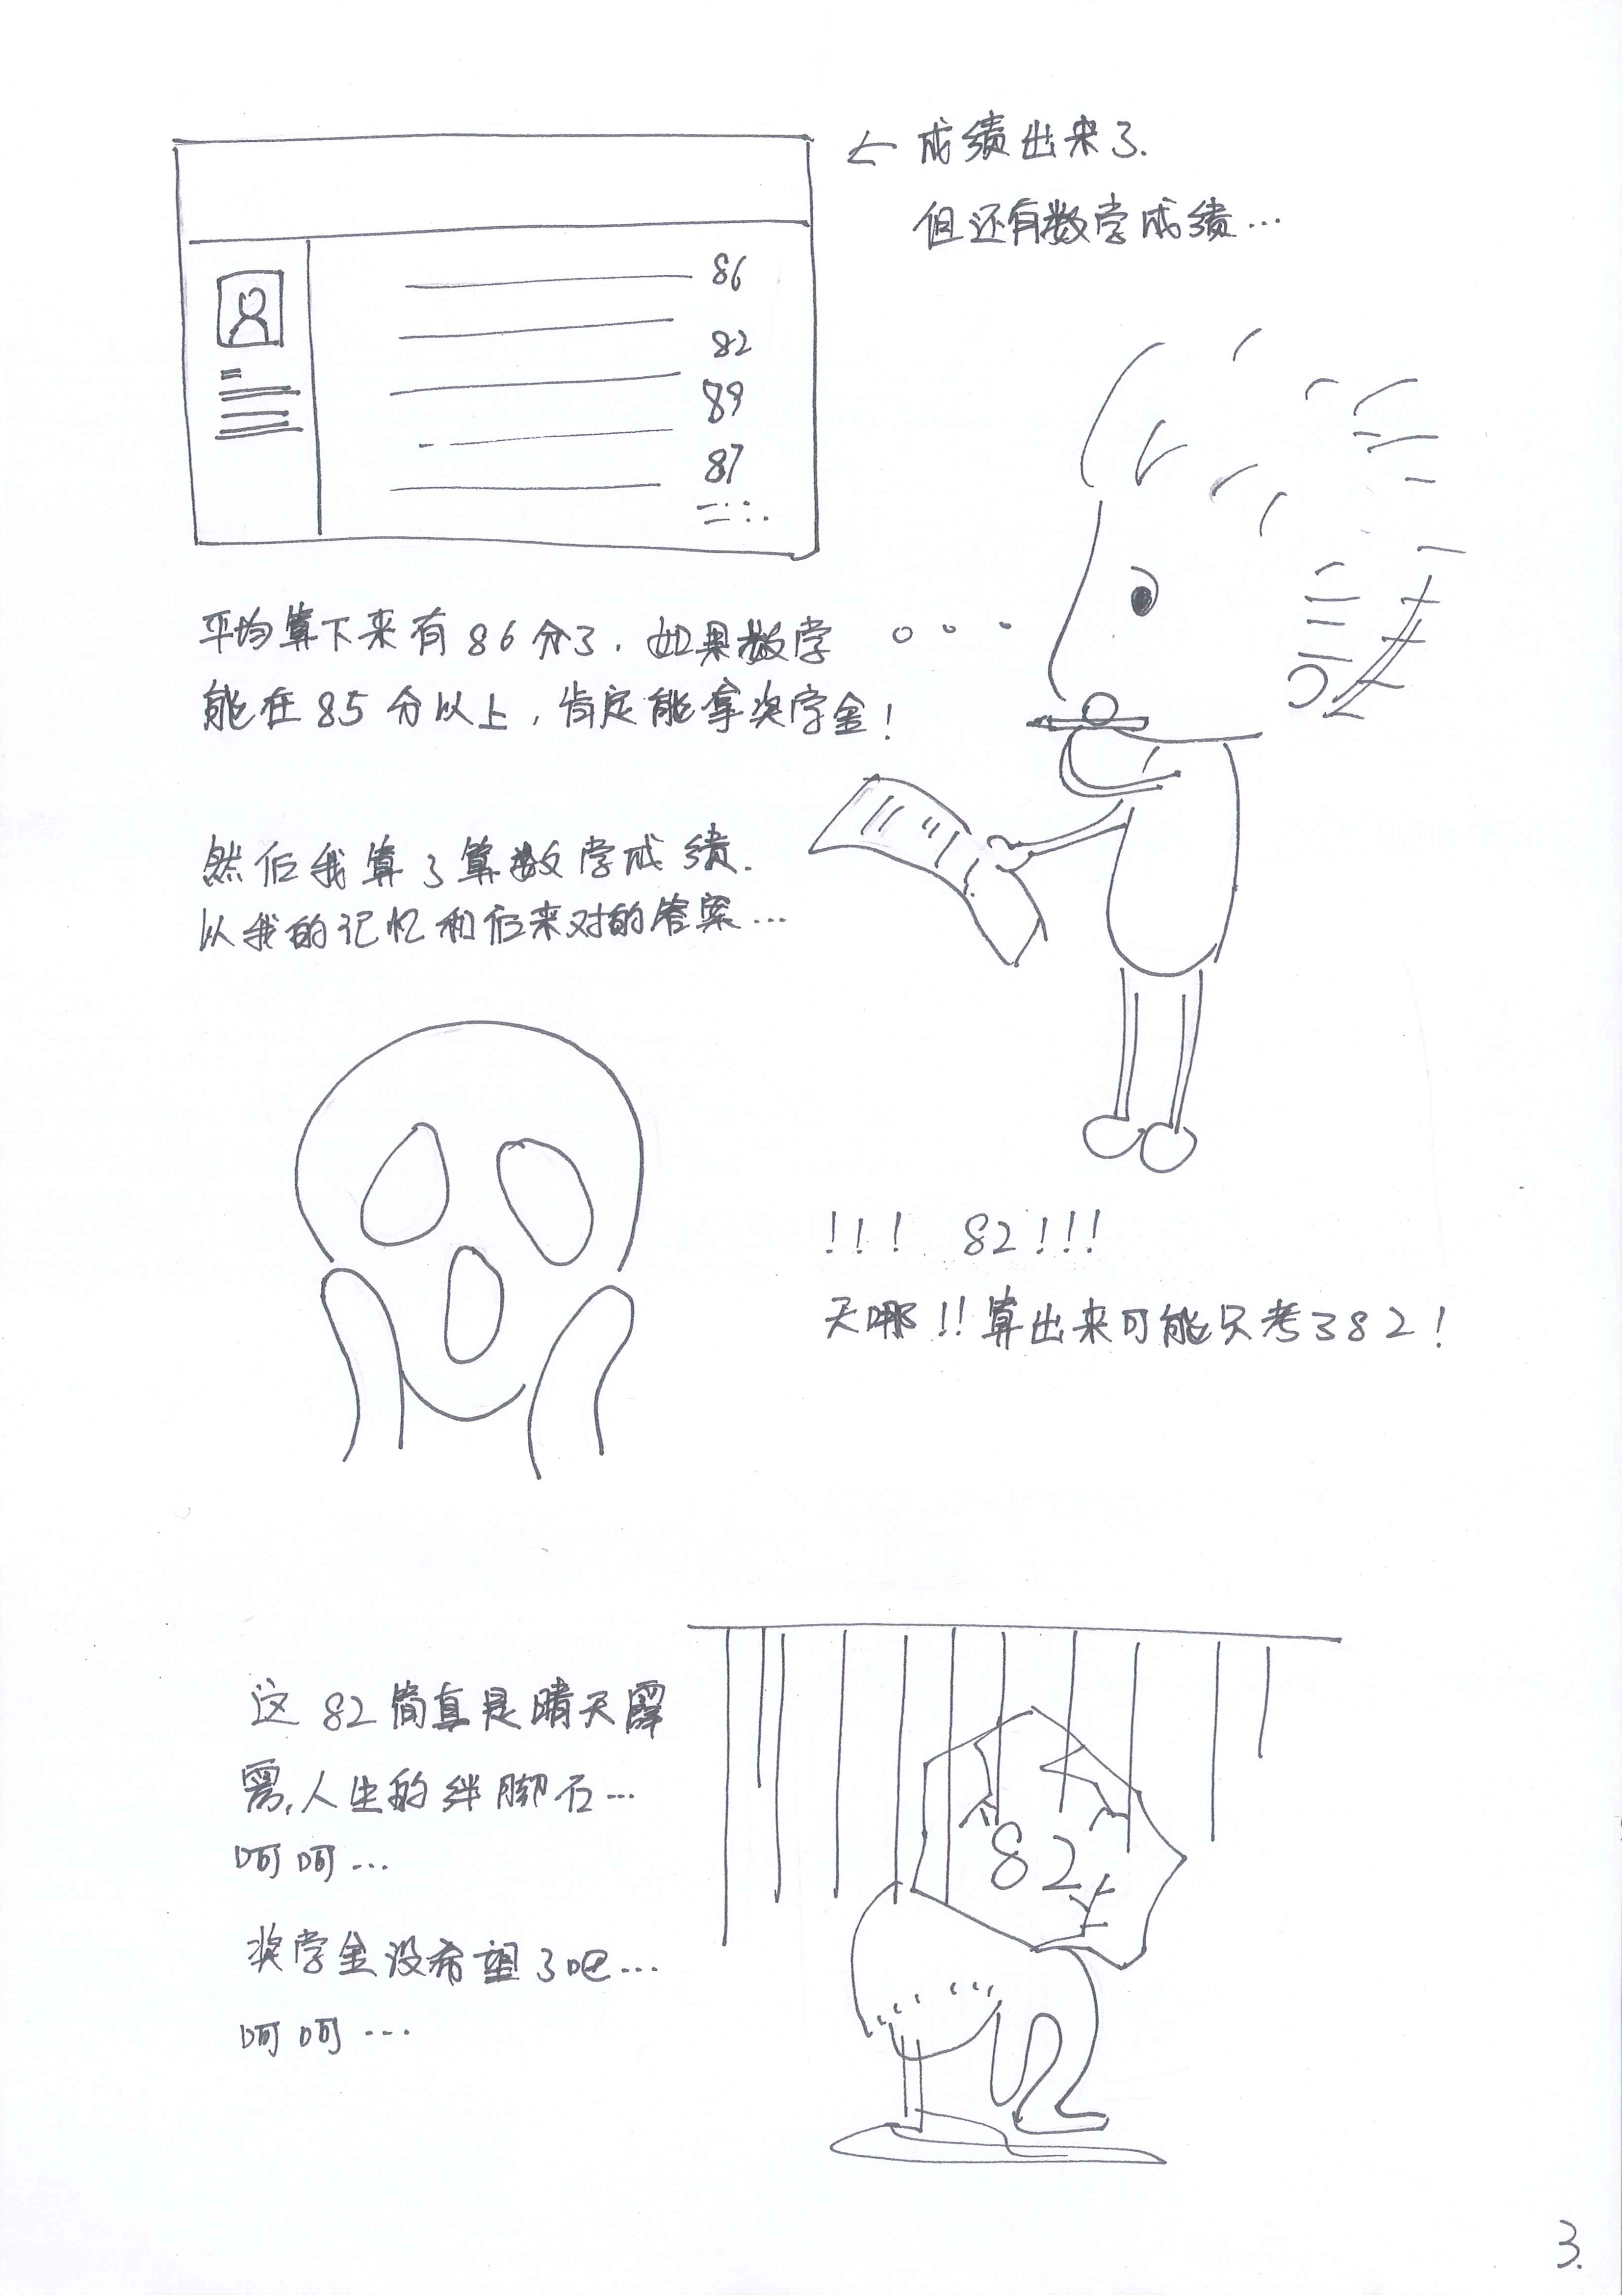 ← 成绩出来了.
但还有数学成绩…
86
82
89
87
平均算下来有86分了，如果数学
能在85分以上，肯定能拿奖学金！
然后我算了算数学成绩.
从我的记忆和后来对的答案…
！！！ 82！！！
天哪！！算出来可能只考了82！
这82简直是晴天霹
雳，人生的绊脚石…
呵呵…
82
奖学金没希望了吧…
呵呵…
3.